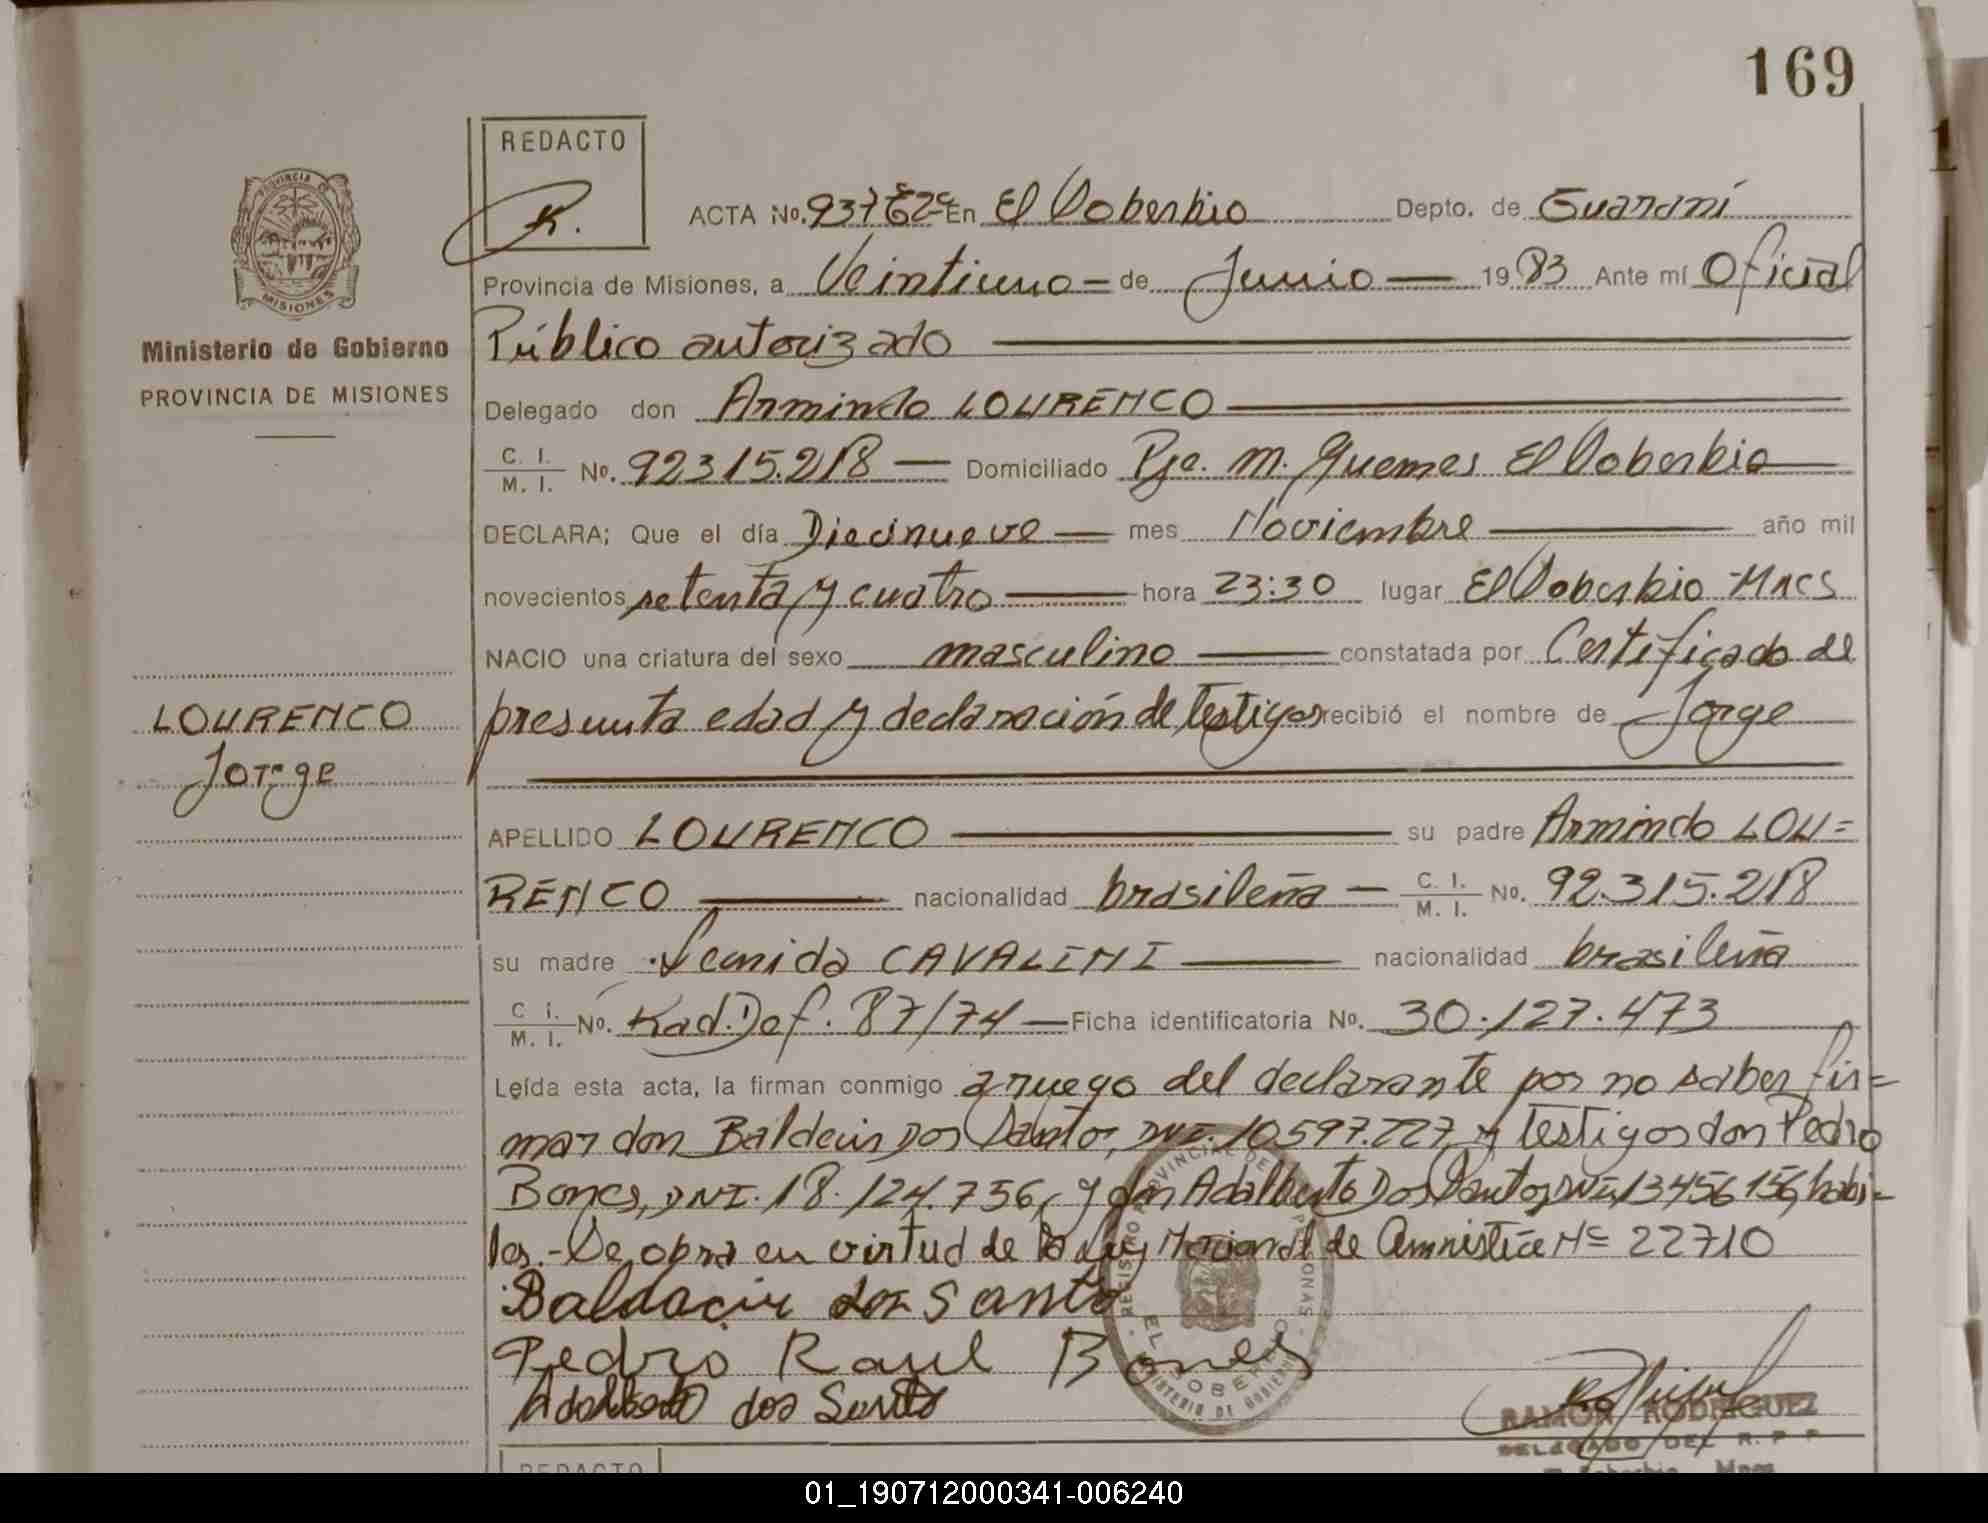 169
REDACTO
R.
ACTA No. 937 En El Soberbio Depto. de Guaraní
PROVINCIA DE
MISIONES
Provincia de Misiones, a Veintiuno = de Junio — 19 83 Ante mí Oficial
Ministerio de Gobierno
Público autorizado
PROVINCIA DE MISIONES
Delegado don Armindo LOURENCO
C. I. / M. I. No. 92315.218 — Domiciliado Pje. M. Guemes El Soberbio
DECLARA; Que el día Diecinueve — mes Noviembre — año mil
novecientos setenta y cuatro — hora 23:30 lugar El Soberbio - Mnes
NACIO una criatura del sexo masculino — constatada por Certificado de
LOURENCO
presunta edad y declaración de testigos recibió el nombre de Jorge
Jorge
APELLIDO LOURENCO — su padre Armindo LOU=
RENCO — nacionalidad brasileña — C. I. / M. I. No. 92.315.218
su madre CAVALINI — nacionalidad brasileña
C. I. / M. I. No. Rad. Def. 87/74 — Ficha identificatoria No. 30.127.473
Leída esta acta, la firman conmigo a ruego del declarante por no saber fir=
mar don Baldecir Dos Santos, DNI. 10.597.227, y testigos don Pedro
Bones, DNI. 18.124.756, y don Adalberto Dos Santos DNI. 13456156, hábi=
les. - Se obra en virtud de la Ley Nacional de Amnistía Nº 22710
Baldacir dos Santo
Pedro Raul Bones
Adalberto dos Santos
REGISTRO PROVINCIAL DE LAS PERSONAS
EL SOBERBIO
MINISTERIO DE GOBIERNO
RAMON RODRIGUEZ
DELEGADO DEL R. P. P.
El Soberbio Mnes.
REDACTO
01_190712000341-006240